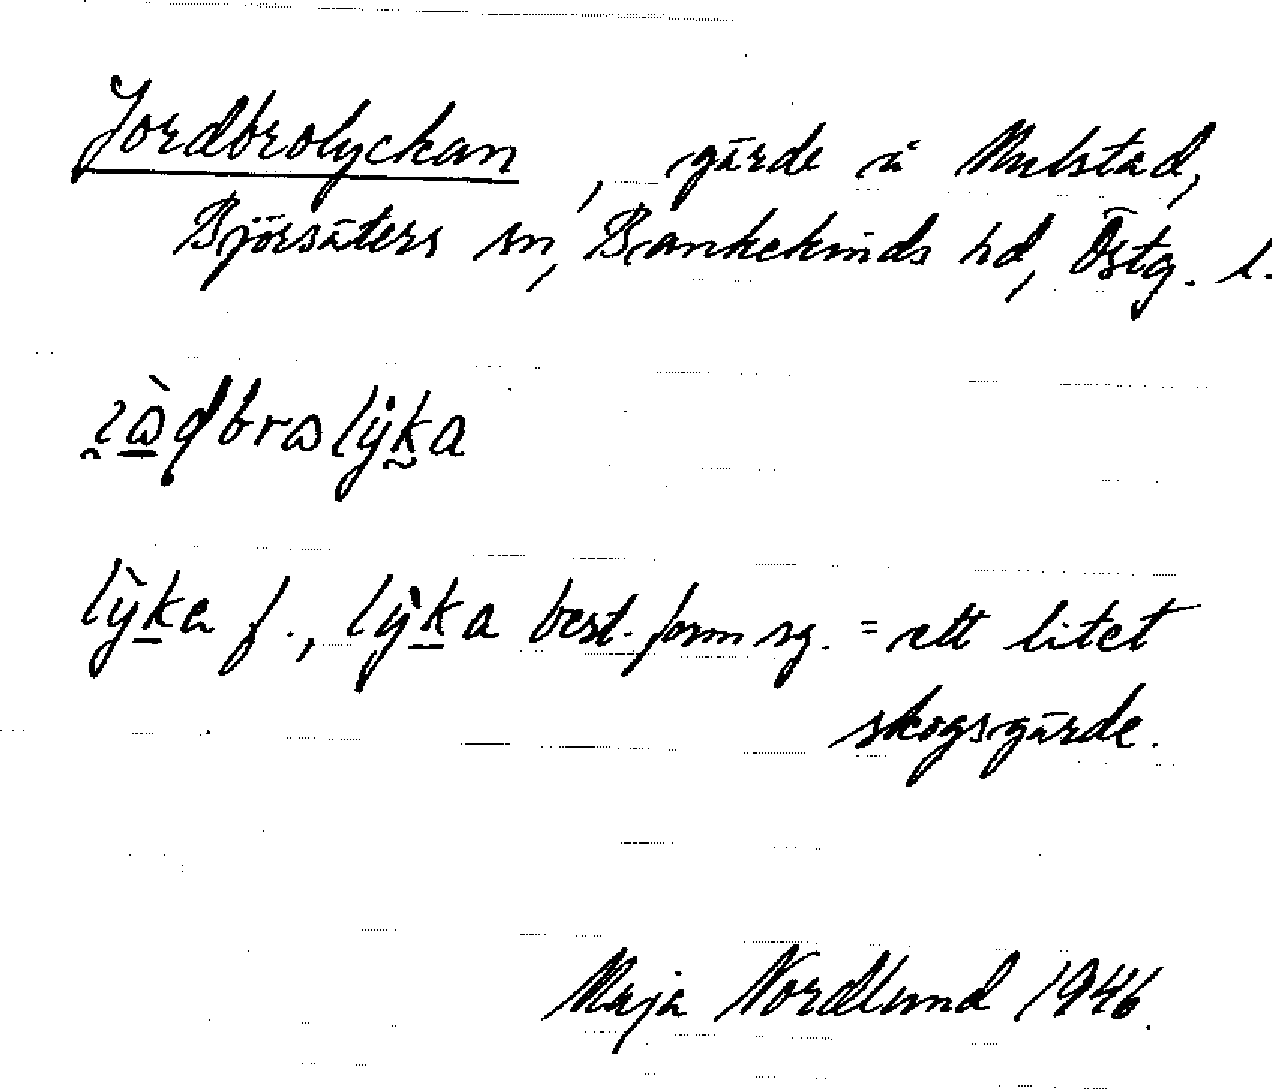 Jordbrolyckan, gärde å Mulstad,
Björsäters sn, Bankekinds hd, Östg. l.
lỳka f., lỳka best. form sg. = ett litet
skogsgärde.
Maja Nordlund 1946.